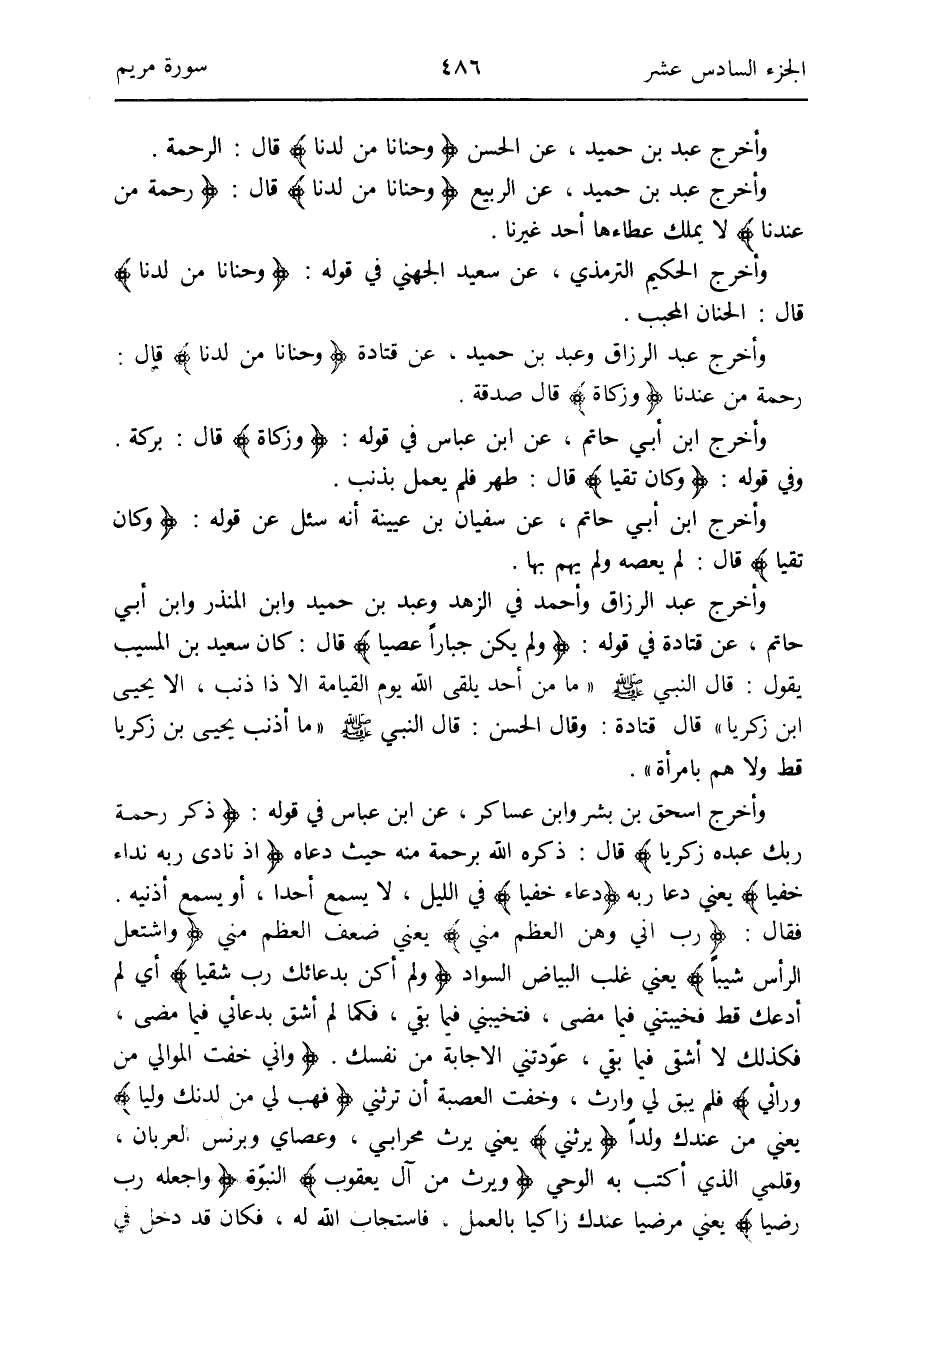 الجزء السادس عشر ٤٨٦ سورة مريم
وأخرج عبد بن حميد ، عن الحسن ﴿ وحنانا من لدنا ﴾ قال : الرحمة .
وأخرج عبد بن حميد ، عن الربيع ﴿ وحنانا من لدنا ﴾ قال : ﴿ رحمة من
عندنا ﴾ لا يملك عطاءها أحد غيرنا .
وأخرج الحكيم الترمذي ، عن سعيد الجهني في قوله : ﴿ وحنانا من لدنا ﴾
قال : الحنان المحبب .
وأخرج عبد الرزاق وعبد بن حميد ، عن قتادة ﴿ وحنانا من لدنا ﴾ قال :
رحمة من عندنا ﴿ وزكاة ﴾ قال صدقة .
وأخرج ابن أبي حاتم ، عن ابن عباس في قوله : ﴿ وزكاة ﴾ قال : بركة .
وفي قوله : ﴿ وكان تقيا ﴾ قال : طهر فلم يعمل بذنب .
وأخرج ابن أبي حاتم ، عن سفيان بن عيينة أنه سئل عن قوله : ﴿ وكان
تقيا ﴾ قال : لم يعصه ولم يهم بها .
وأخرج عبد الرزاق وأحمد في الزهد وعبد بن حميد وابن المنذر وابن أبي
حاتم ، عن قتادة في قوله : ﴿ ولم يكن جباراً عصيا ﴾ قال : كان سعيد بن المسيب
يقول : قال النبي ﷺ « ما من أحد يلقى الله يوم القيامة الا ذا ذنب ، الا يحيى
ابن زكريا» قال قتادة : وقال الحسن : قال النبي ﷺ «ما أذنب يحيى بن زكريا
قط ولا هم بامرأة» .
وأخرج اسحق بن بشر وابن عساكر ، عن ابن عباس في قوله : ﴿ ذكر رحمة
ربك عبده زكريا ﴾ قال : ذكره الله برحمة منه حيث دعاه ﴿ اذ نادى ربه نداء
خفيا ﴾ يعني دعا ربه ﴿دعاء خفيا ﴾ في الليل ، لا يسمع أحدا ، أو يسمع أذنيه .
فقال : ﴿ رب اني وهن العظم مني ﴾ يعني ضعف العظم مني ﴿ واشتعل
الرأس شيباً ﴾ يعني غلب البياض السواد ﴿ ولم أكن بدعائك رب شقيا ﴾ أي لم
أدعك قط فخيبتني فيما مضى ، فتخيبني فيما بقي ، فكما لم أشق بدعائي فيما مضى ،
فكذلك لا أشقى فيما بقي ، عوّدتني الاجابة من نفسك . ﴿ واني خفت الموالي من
ورائي ﴾ فلم يبق لي وارث ، وخفت العصبة أن ترثني ﴿ فهب لي من لدنك وليا ﴾
يعني من عندك ولداً ﴿ يرثني ﴾ يعني يرث محرابي ، وعصاي وبرنس العربان ،
وقلمي الذي أكتب به الوحي ﴿ ويرث من آل يعقوب ﴾ النبوّة ﴿ واجعله رب
رضيا ﴾ يعني مرضيا عندك زاكيا بالعمل ، فاستجاب الله له ، فكان قد دخل في